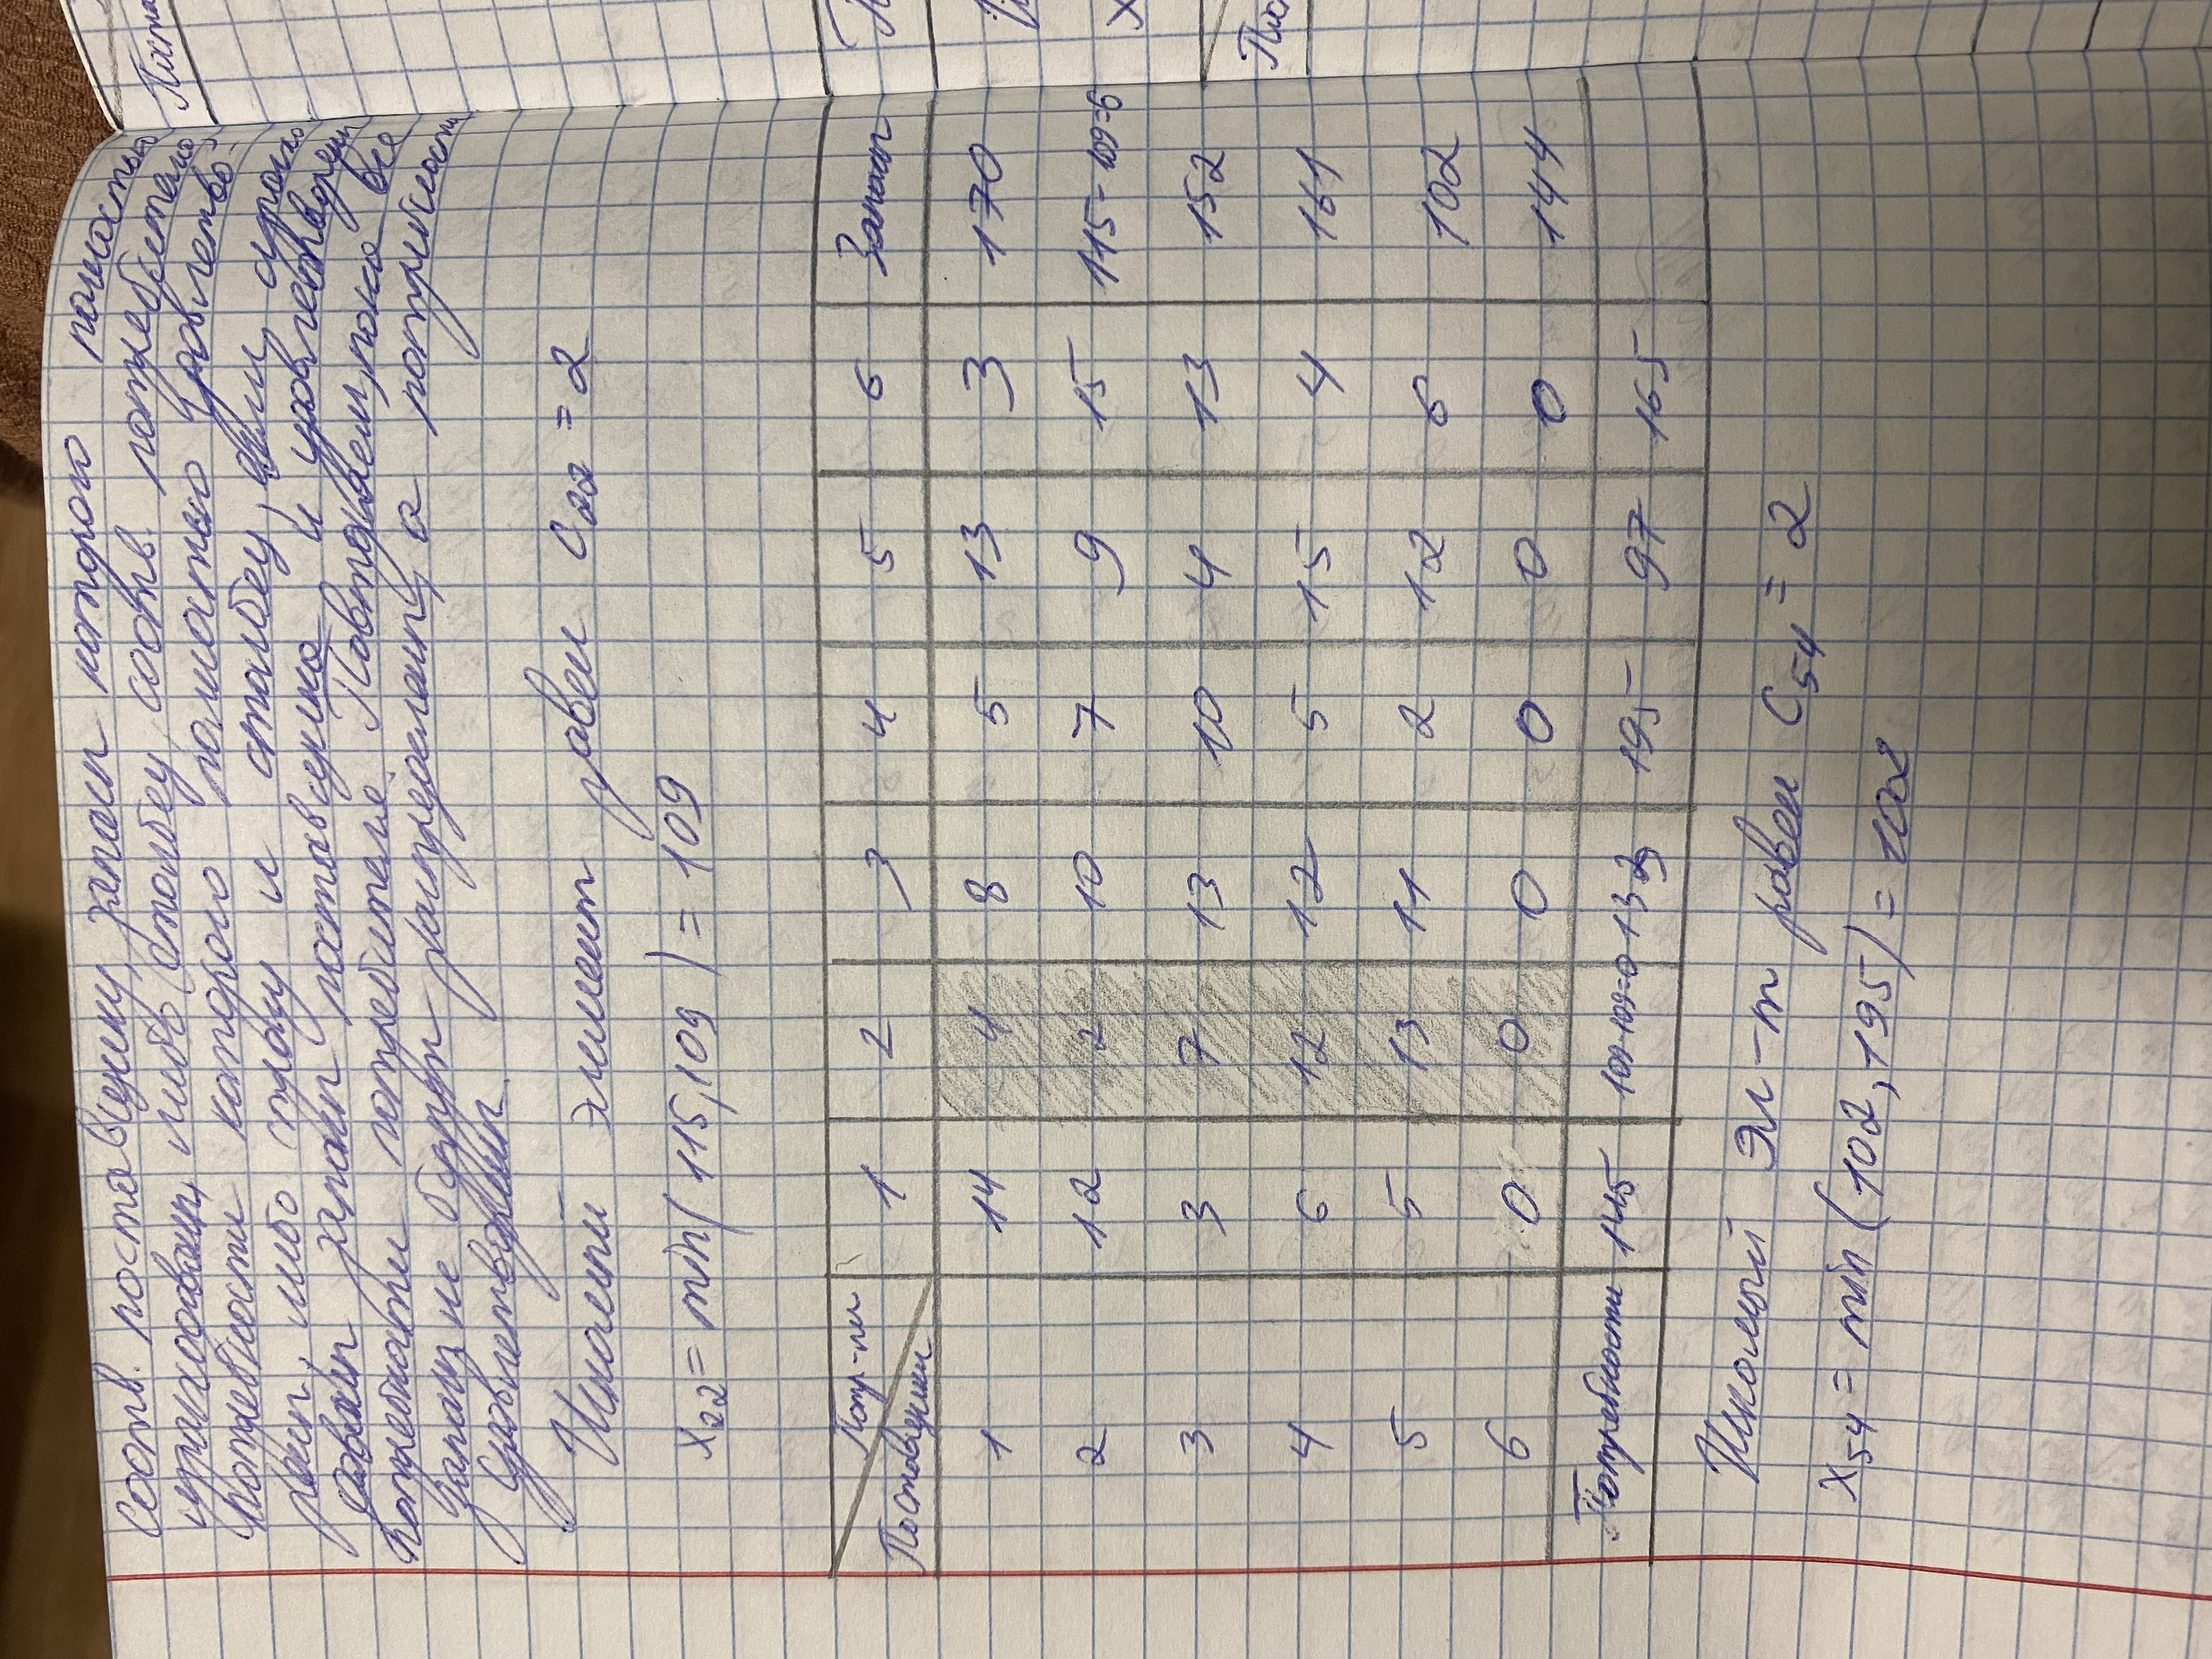 соотв. поставщику, запасы которого полностью
израсходованы, либо столбец, соотв. потребителю,
потребности которого полностью удовлетво-
рены, либо строку и столбец, если израсхо-
дованы запасы поставщика и удовлетворены
потребности потребителя. Повторяем, пока все
запасы не будут распределены, а потребности
удовлетворены.
Искомый элемент равен c22 = 2
x22 = min(115,109) = 109
Потр-ли
Поставщики 1 2 3 4 5 6 Запасы
1 14 4 8 5 13 3 170
2 12 2 10 7 9 15 115-109=6
3 3 7 13 10 4 13 152
4 6 12 12 5 15 4 161
5 5 13 11 2 12 6 102
6 0 0 0 0 0 0 144
Потребности 145 109-109=0 133 195 97 165
Искомый эл-т равен c54 = 2
x54 = min(102,195) = 102
Поста
Х
Пос